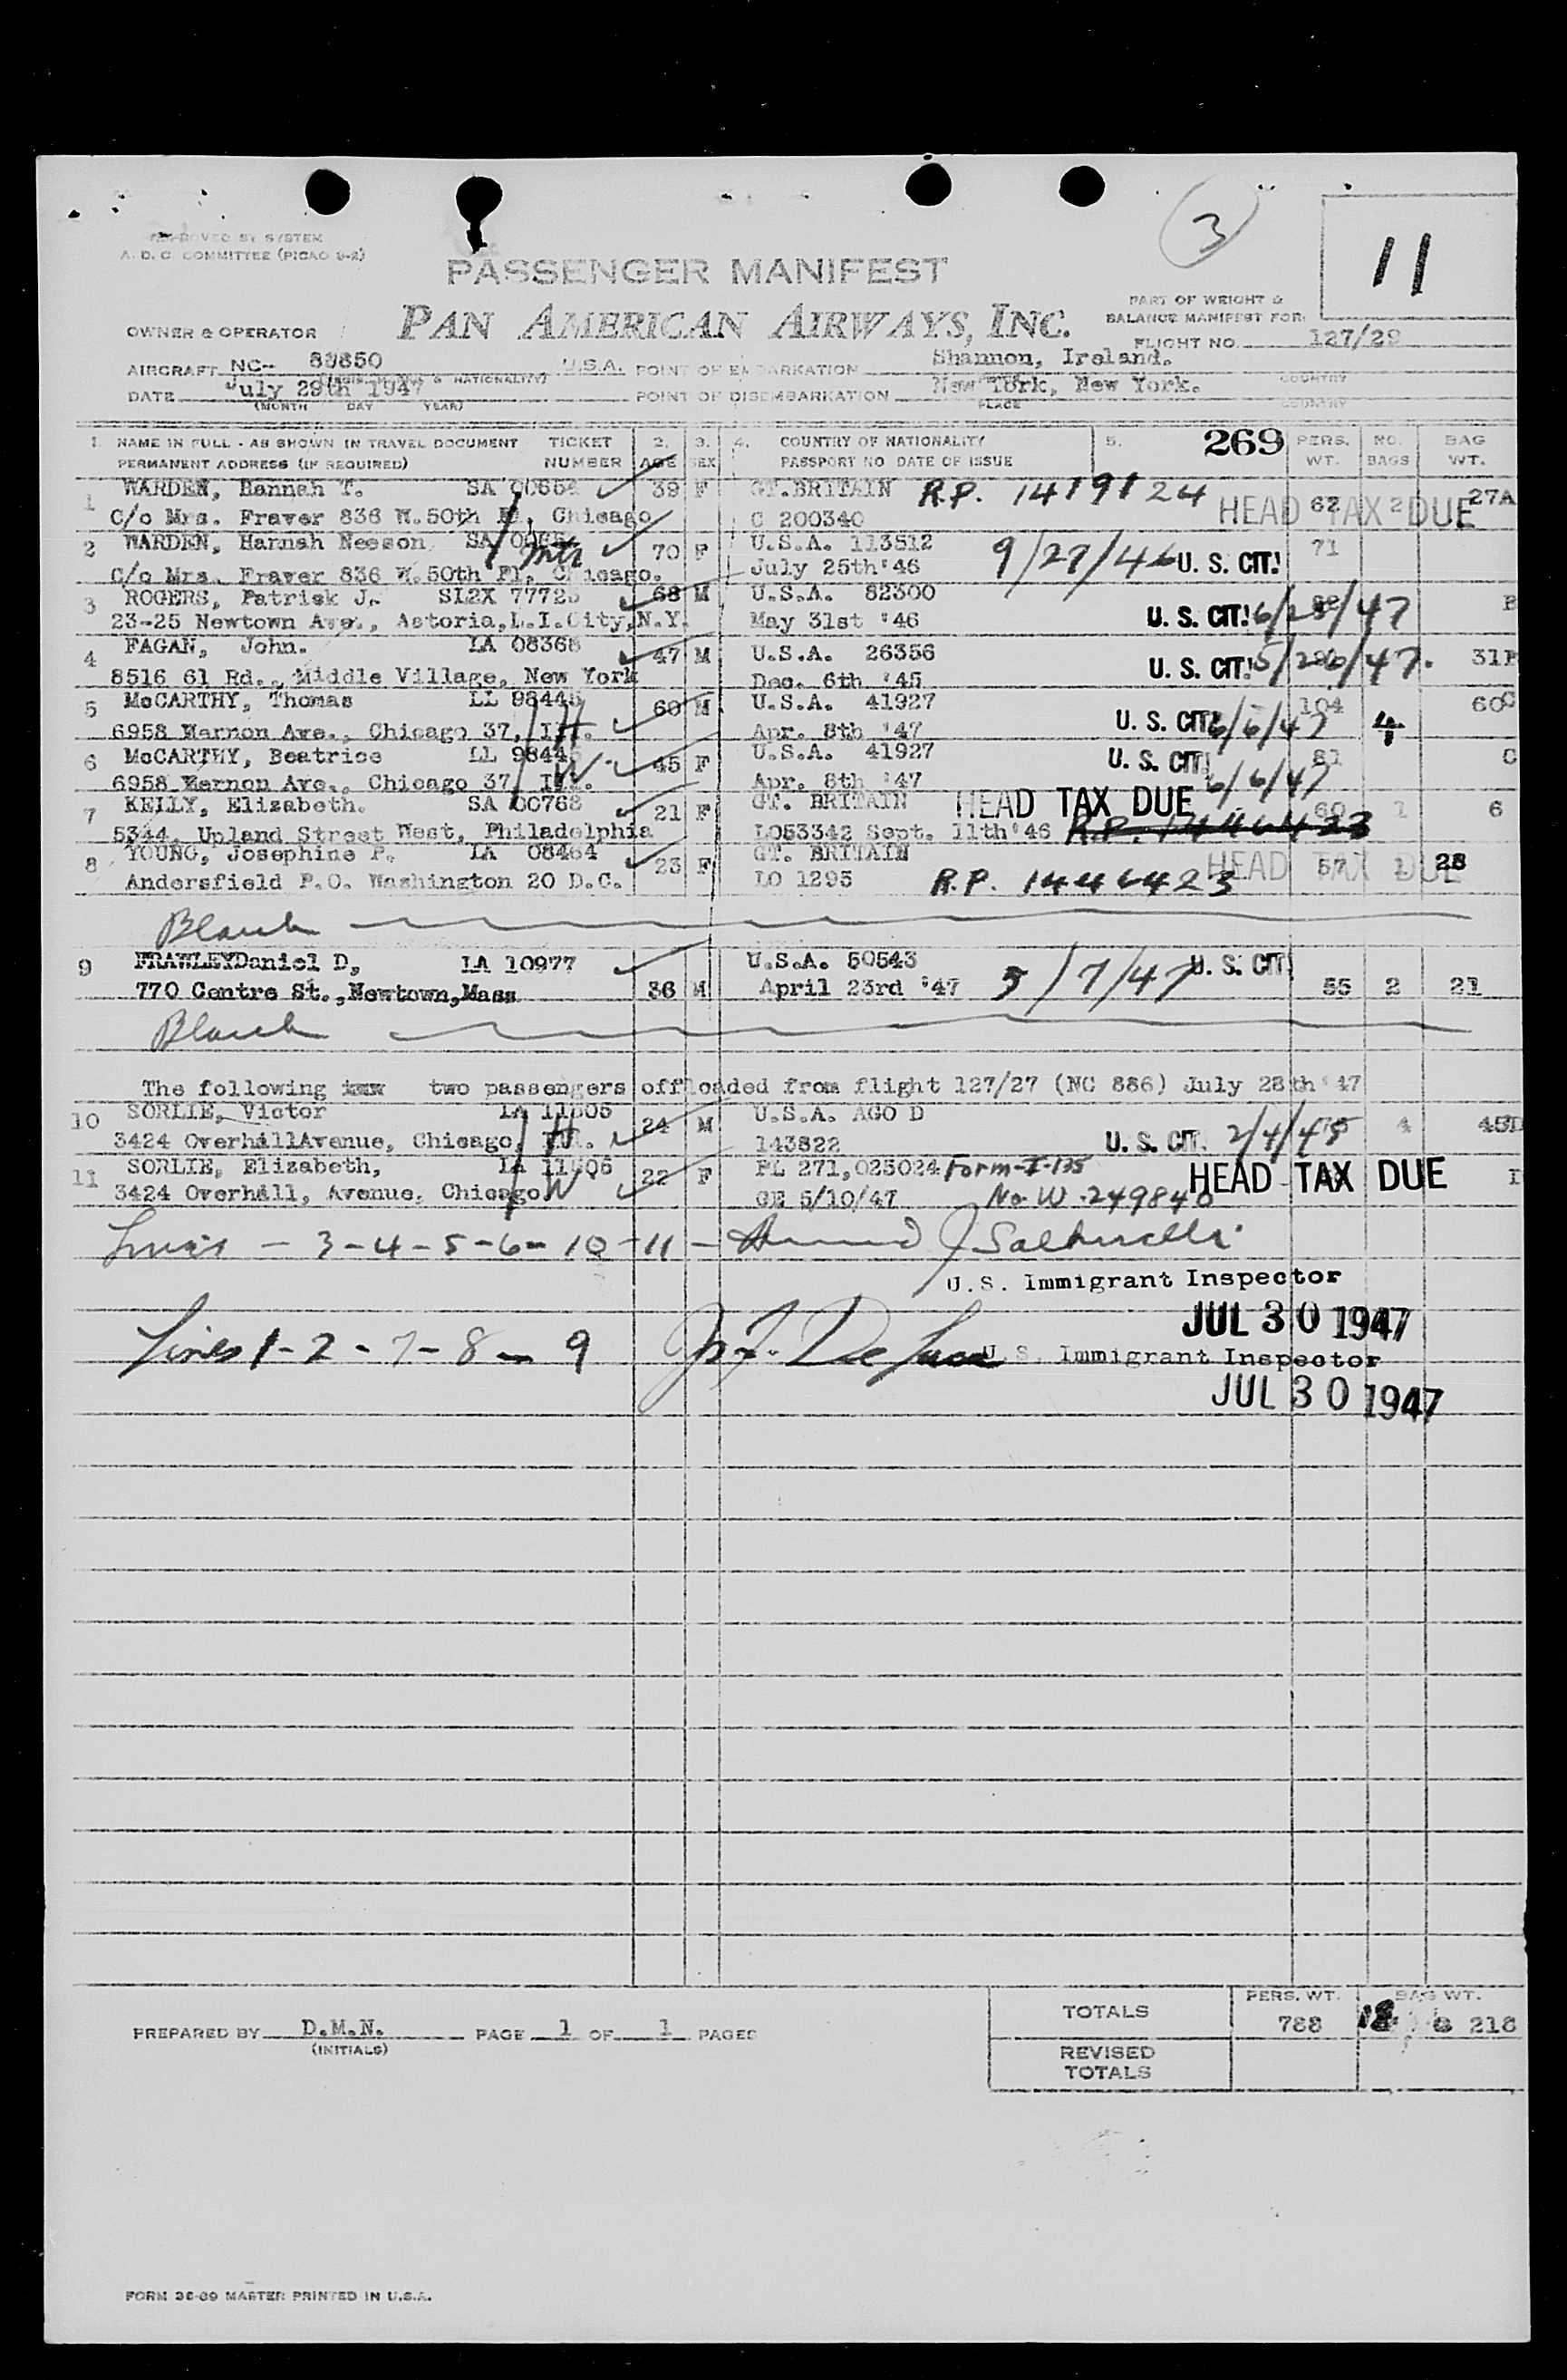 APPROVED BY SYSTEM
A. D. C. COMMITTEE (PICAO 9-2)
3
11
PASSENGER MANIFEST
PAN AMERICAN AIRWAYS, INC.
PART OF WEIGHT &
BALANCE MANIFEST FOR:
OWNER & OPERATOR
FLIGHT NO. 127/29
AIRCRAFT NC- U.S.A. POINT OF EMBARKATION Shannon, Ireland.
& NATIONALITY) COUNTRY
DATE July 29th 1947 POINT OF DISEMBARKATION New York, New York.
(MONTH DAY YEAR) PLACE COUNTRY
1. NAME IN FULL - AS SHOWN IN TRAVEL DOCUMENT TICKET 2. 3. 4. COUNTRY OF NATIONALITY 5. 269 PERS. NO. BAG
PERMANENT ADDRESS (IF REQUIRED) NUMBER AGE SEX PASSPORT NO DATE OF ISSUE WT. BAGS WT.
1 WARDEN, Hannah T. SA 39 F GT.BRITAIN R.P. 1419124 HEAD TAX DUE 62 2 27A
C/o Mrs. Fraver 836 W.50th Pl, Chicago C 200340
2 WARDEN, Hannah Neeson SA mtr 70 F U.S.A. 113512 9/27/46 U. S. CIT. 71
C/o Mrs. Fraver 836 W.50th Pl, Chicago. July 25th '46
3 ROGERS, Patrick J. SL2X 68 M U.S.A. 82300 U. S. CIT. 47
23-25 Newtown Ave., Astoria,L.I.City,N.Y. May 31st '46
4 FAGAN, John. LA 47 M U.S.A. 26356 U. S. CIT. 5/26/47. 31B
8516 61 Rd., Middle Village, New York Dec. 6th '45
5 McCARTHY, Thomas LL H. 60 M U.S.A. 41927 U. S. CIT. 6/6/47 104 4 60C
6958 Ave., Chicago 37, Ill. Apr. 8th '47
6 McCARTHY, Beatrice LL W. 45 F U.S.A. 41927 U. S. CIT. 6/6/47 81 C
6958 Ave., Chicago 37, Ill. Apr. 8th '47
7 KELLY, Elizabeth. SA 00768 21 F GT. BRITAIN HEAD TAX DUE 60 1 6
5344, Upland Street West, Philadelphia LO53342 Sept. 11th '46 R.P. 1446423
8 YOUNG, Josephine P. LA 08464 23 F GT. BRITAIN HEAD TAX DUE 57 1 28
Andersfield P.O. Washington 20 D.C. LO 1295 R.P. 1446423
Blank
9 FRAWLEYDaniel D, LA 10977 U.S.A. 50543 5/7/47 U. S. CIT.
770 Centre St.,Newtown,Mass 36 M April 23rd '47 55 2 21
Blank
The following two passengers offloaded from flight 127/27 (NC 886) July 28th '47
10 SORLIE, Victor LA 11505 H. 24 M U.S.A. AGO D U. S. CIT. 4 45D
3424 OverhillAvenue, Chicago, Ill. 143822
11 SORLIE, Elizabeth, LA 11506 W 22 F PL 271,025024 Form-I-135 HEAD TAX DUE
3424 Overhill, Avenue, Chicago GE 5/10/47 No. W-249840
Lines - 3-4-5-6-10-11 -
U.S. Immigrant Inspector
JUL 30 1947
Lines 1-2-7-8-9
U.S. Immigrant Inspector
JUL 30 1947
PREPARED BY D.M.N. PAGE 1 OF 1 PAGES
(INITIALS)
TOTALS PERS. WT. 788 BAG WT. 18 218
REVISED
TOTALS
FORM 36-09 MASTER PRINTED IN U.S.A.